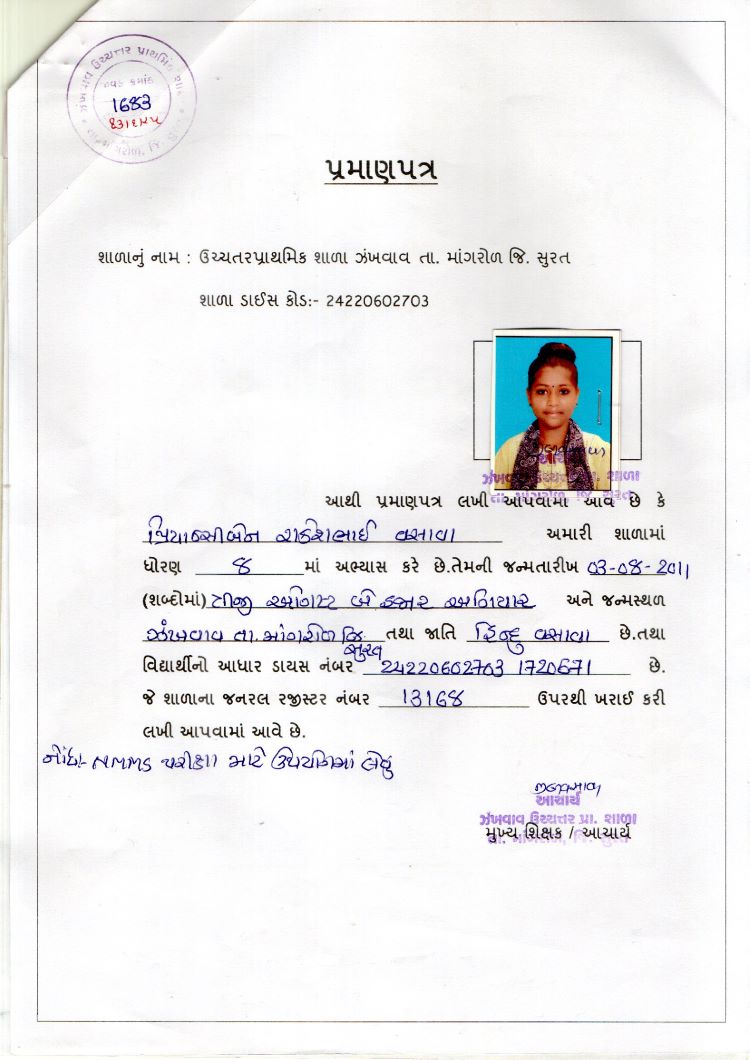 ઝંખવાવ ઉચ્ચત્તર પ્રાથમિક શાળા
જાવક ક્રમાંક
1683
તા. માંગરોળ, જિ. સુરત
પ્રમાણપત્ર
શાળાનું નામ : ઉચ્ચતરપ્રાથમિક શાળા ઝંખવાવ તા. માંગરોળ જિ. સુરત
શાળા ડાઈસ કોડ:- 24220602703
ઝંખવાવ ઉચ્ચત્તર પ્રા. શાળા
તા. માંગરોળ, જિ. સુરત
આથી પ્રમાણપત્ર લખી આપવામાં આવે છે કે
પ્રિયાન્સીબેન રાકેશભાઈ વસાવા અમારી શાળામાં
ધોરણ ૪ માં અભ્યાસ કરે છે.તેમની જન્મતારીખ 03-08-2011
(શબ્દોમાં) ત્રીજી ઓગષ્ટ બે હજાર અગિયાર અને જન્મસ્થળ
ઝંખવાવ તા. માંગરોળ જિ. સુરત તથા જાતિ હિન્દુ વસાવા છે.તથા
વિદ્યાર્થીનો આધાર ડાયસ નંબર 24220602703 1720671 છે.
જે શાળાના જનરલ રજીસ્ટર નંબર 13168 ઉપરથી ખરાઈ કરી
લખી આપવામાં આવે છે.
નોંધ:- NMMS પરીક્ષા માટે ઉપયોગમાં લેવું
આચાર્ય
ઝંખવાવ ઉચ્ચત્તર પ્રા. શાળા
મુખ્ય શિક્ષક / આચાર્ય
તા. માંગરોળ, જિ. સુરત